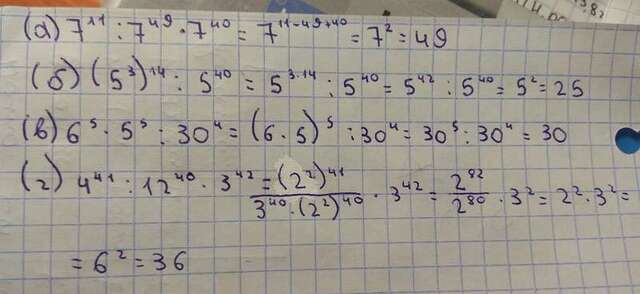 (а) 7¹¹ : 7⁴⁹ · 7⁴⁰ = 7¹¹⁻⁴⁹⁺⁴⁰ = 7² = 49
(б) (5³)¹⁴ : 5⁴⁰ = 5³·¹⁴ : 5⁴⁰ = 5⁴² : 5⁴⁰ = 5² = 25
(в) 6⁵ · 5⁵ : 30⁴ = (6 · 5)⁵ : 30⁴ = 30⁵ : 30⁴ = 30
(г) 4⁴¹ : 12⁴⁰ · 3⁴² = (2²)⁴¹ / 3⁴⁰ · (2²)⁴⁰ · 3⁴² = 2⁸² / 2⁸⁰ · 3² = 2² · 3² =
= 6² = 36